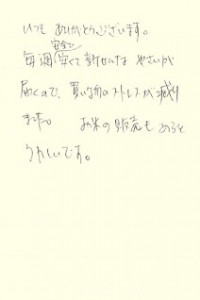 いつも ありがとうございます。
安全で
毎週 安くて 新せんな やさいが
届くので、買い物のストレスが減り
ます。 お米の販売も あると
うれしいです。